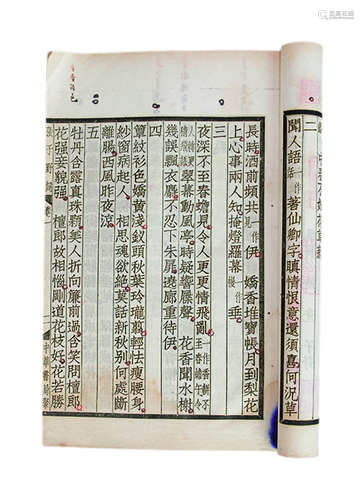 二
聞人語一作話著仙卿字瞋情恨意還須喜何況草
長時酒前頻共伊 嬌香堆寶帳月到梨花
上心事兩人知掩燈羅幕垂
三
夜深不至春蟾見令人更更情飛亂
翠幕動風亭時疑響屧聲 花香聞水榭
幾誤飄衣麝不忍下朱扉遶廊重待伊
四
簟紋衫色嬌黃淺釵頭秋葉玲瓏翦輕怯瘦腰身
紗窗病起人 相思魂欲絕莫話新秋別何處斷
離腸西風昨夜涼
五
牡丹含露真珠顆美人折向簾前過含笑問檀郎
花強妾貌強 檀郎故相惱剛道花枝好花若勝
張子野詞卷一